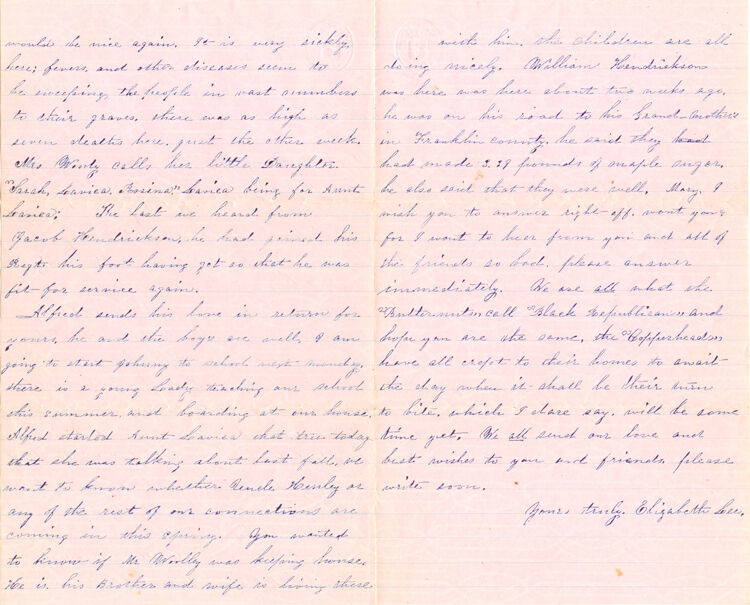 would be nice again. It is very sickly
here; fevers and other diseases seem to
be sweeping the people in vast numbers
to their graves. there was as high as
seven deaths here just the other week.
Mrs Wooly calls her little Daughter
"Sarah, Lavica, Rosina," Lavica being for Aunt
Lavica; The last we heard from
Jacob Hendrickson, he had joined his
Regt. his foot having got so that he was
fit for service again.
Alfred sends his love in return for
yours, he and the boys are well, I am
going to start Johnny to school next monday,
there is a young Lady teaching our school
this summer, and boarding at our house.
Alfred started Aunt Lavica that tree today
that she was talking about last fall, we
want to know whether Uncle Henley or
any of the rest of our connections are
coming in this spring. You wanted
to know if Mr Woolley was keeping house.
He is, his Brother and wife is living there
with him. the children are all
doing nicely. William Hendrickson
was here was here about two weeks ago,
he was on his road to his Grand-mothers
in Franklin county, he said they had
had made 339 pounds of maple sugar.
he also said that they were well, Mary, I
wish you to answer right-off. wont you;
for I want to hear from you and all of
the friends so bad. please answer
immediately. We are all what the
"Butternuts" call "Black Republicans" and
hope you are the same, the "Copperheads"
have all crept to their homes to await
the day when it shall be their turn
to bite, which I dare say, will be some
time yet. We all send our love and
best wishes to you and friends, please
write soon.
Yours truly, Elizabeth Lee.